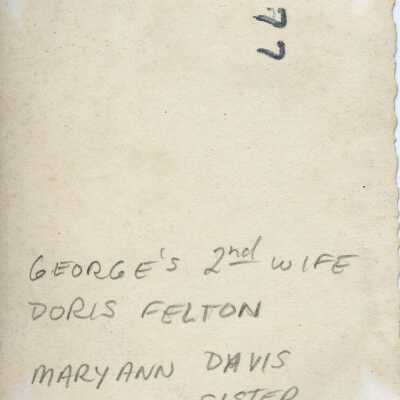 77
GEORGE'S 2nd WIFE
DORIS FELTON
MARYANN DAVIS
SISTER